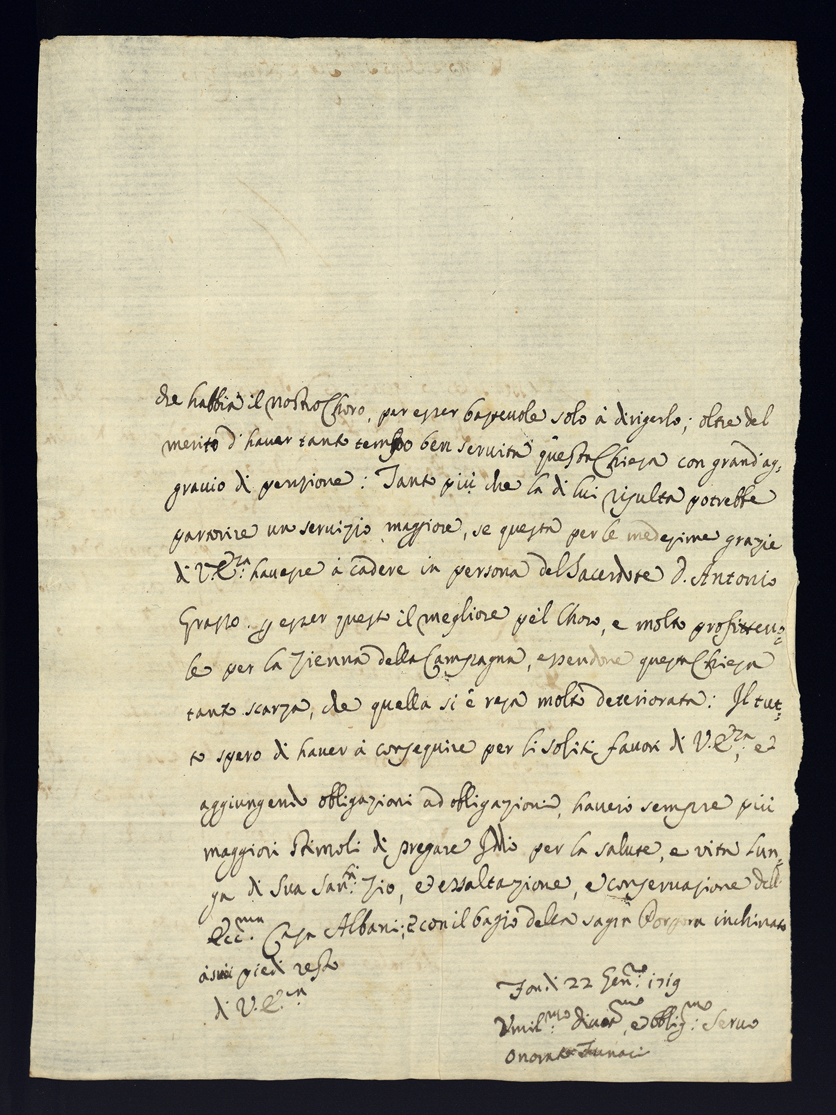 che habbia il nostro Choro, per esser bastevole solo à dirigerlo; oltre del
merito d'haver tanto tempo ben servita questa Chiesa con grand'ag,
gravio di penzione: Tanto più che la di lui risulta potrebbe
partorire un servizio maggiore, se questa per le medesime grazie
di V. E.za havesse à cadere in persona del Sacerdote D. Antonio
Grasso. p esser questo il megliore pe'l Choro, e molto profittevo=
le per la Sienna della Campagna, essendone questa Chiesa
tanto scarza, che quella si è resa molto deteriorata: Il tut=
to spero di haver à conseguire per li soliti favori di V. E.za, et
aggiungendo obligazioni ad obligazioni, haverò sempre più
maggiori stimoli di pregare Iddio per la salute, e vita Lun,
ga di Sua San.tà Zio, et essaltazione, e conservazione dell'
Ecc.ma Casa Albani; e con il bagio della sagra Porpora inchinato
à suoi piedi resto
di V. E.za
Fondi 22 Gen.ro 1719
Umil.mo divot.mo, et oblig.mo Servo
Onorato